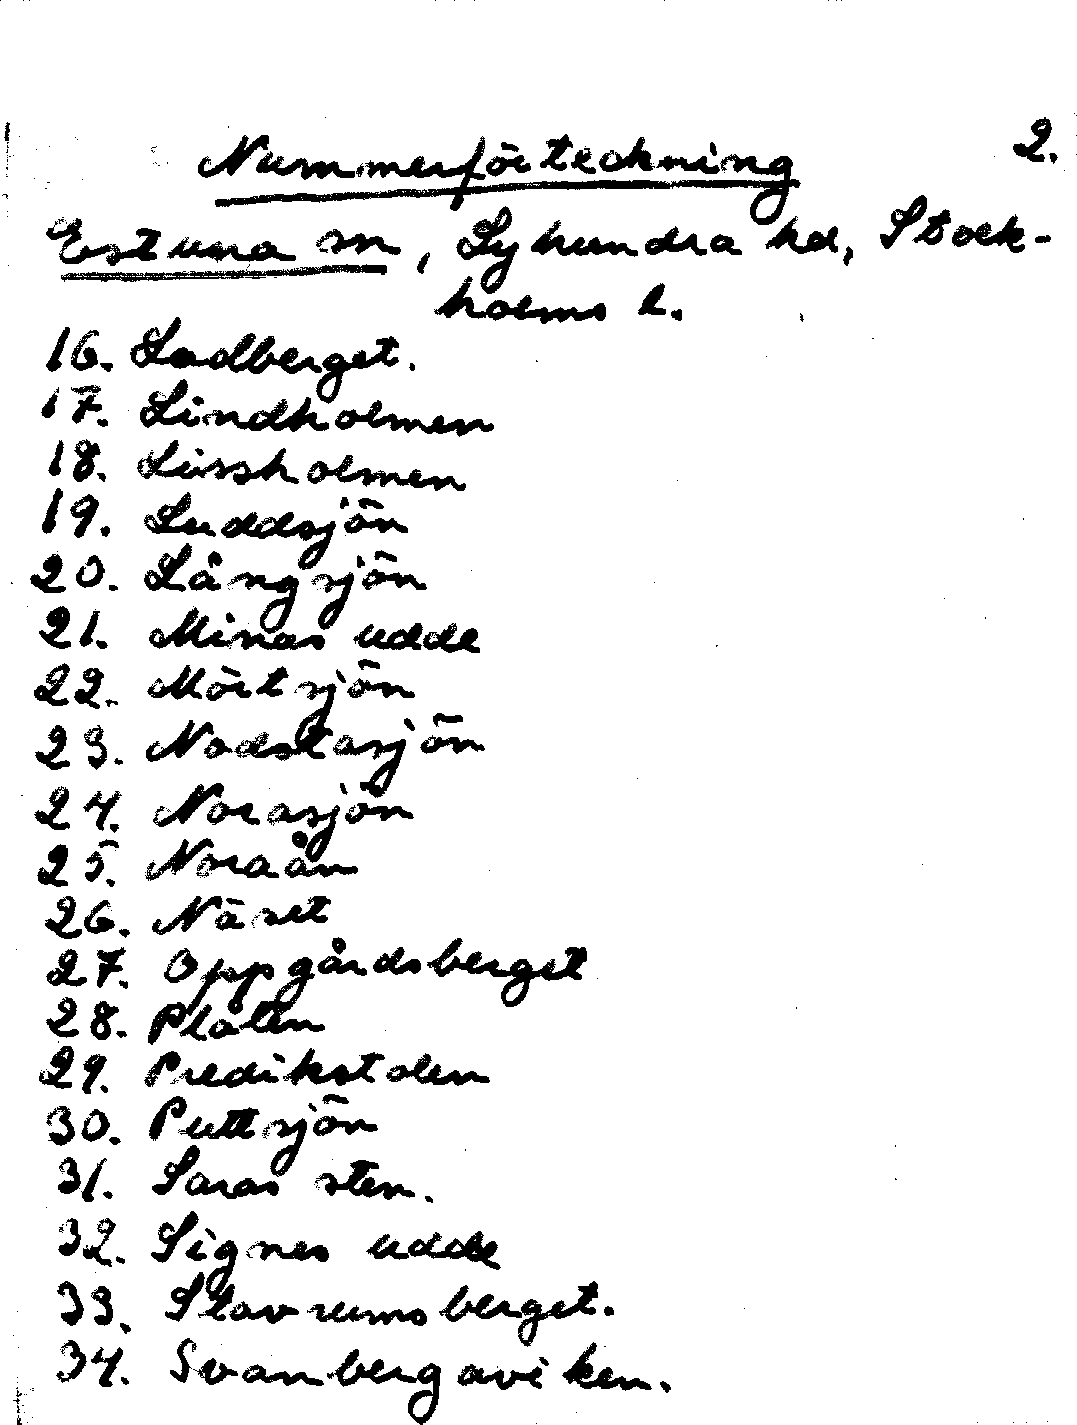 2.
Nummerförteckning
Estuna sn, Lyhundra hd, Stock-
holms l.
16. Ladberget.
17. Lindholmen
18. Lussholmen
19. Luddsjön
20. Långsjön
21. Minas udde
22. Mörtsjön
23. Nodstasjön
24. Norasjön
25. Noraån
26. Näset
27. Oppgårdsberget
28. Plåten
29. Predikstolen
30. Puttsjön
31. Saras sten.
32. Signes udde
33. Stavrumsberget.
34. Svanbergaviken.